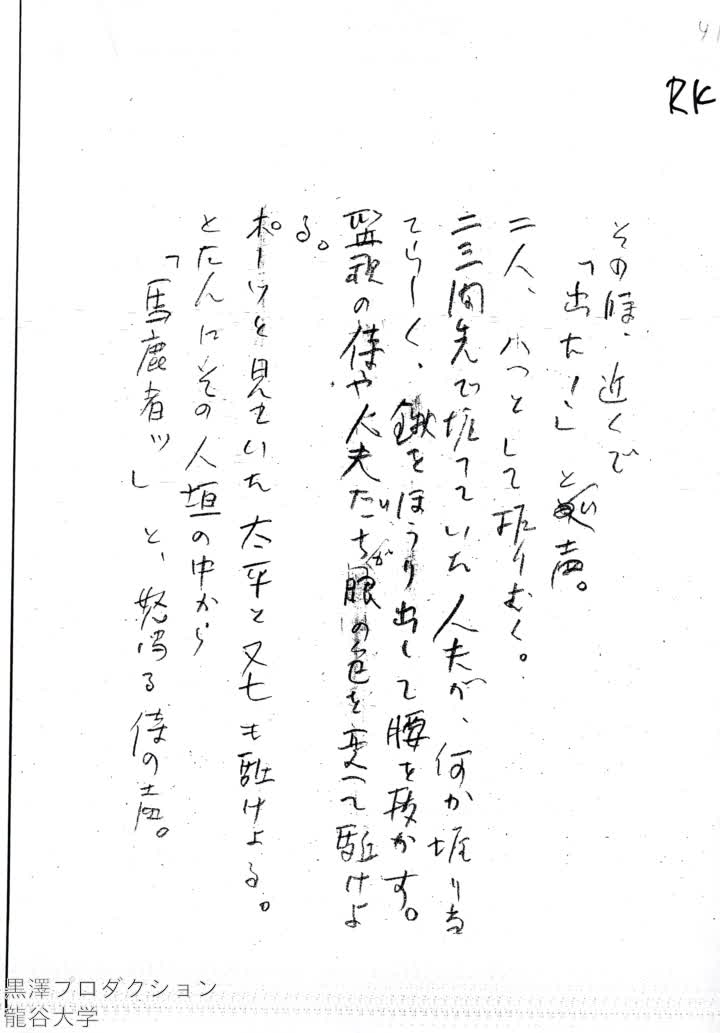 41
RK
その時、近くで
「出た！」と鋭い声。
二人、ハっとして振りむく。
二三間先で堀っていた人夫が、何か堀り当
てらしく、鍬をほうり出して腰を抜かす。
監視の侍や人夫たちが眼の色を変へて駈けよ
る。
ポーッと見ていた太平と又七も駈けよる。
とたんにその人垣の中から
「馬鹿者ッ」と、怒鳴る侍の声。
黒澤プロダクション
龍谷大学